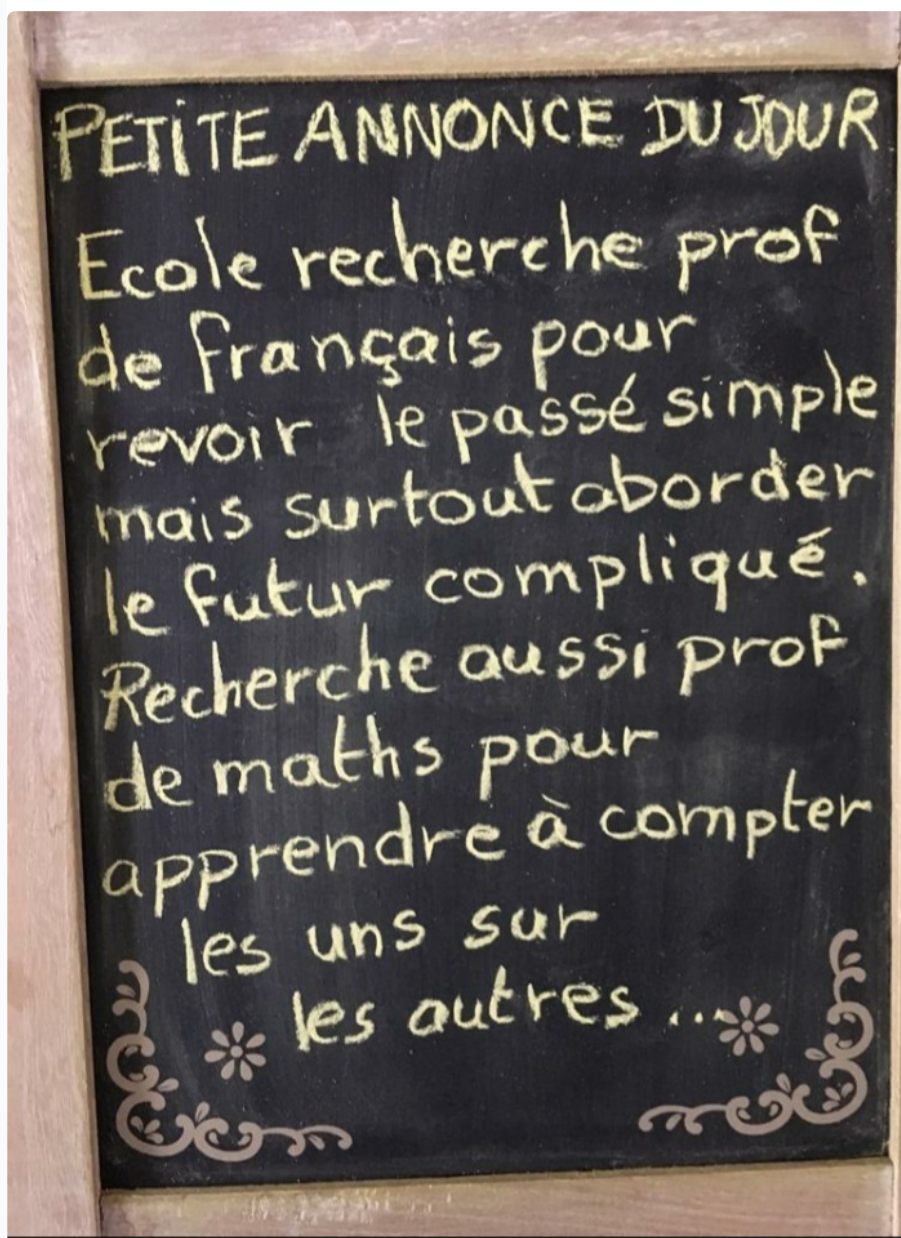 PETITE ANNONCE DU JOUR
Ecole recherche prof
de français pour
revoir le passé simple
mais surtout aborder
le futur compliqué.
Recherche aussi prof
de maths pour
apprendre à compter
les uns sur
les autres ...